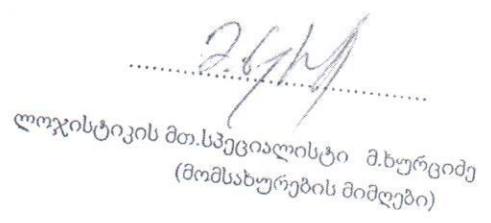 ლოჯისტიკის მთ.სპეციალისტი მ.ხურციძე
(მომსახურების მიმღები)